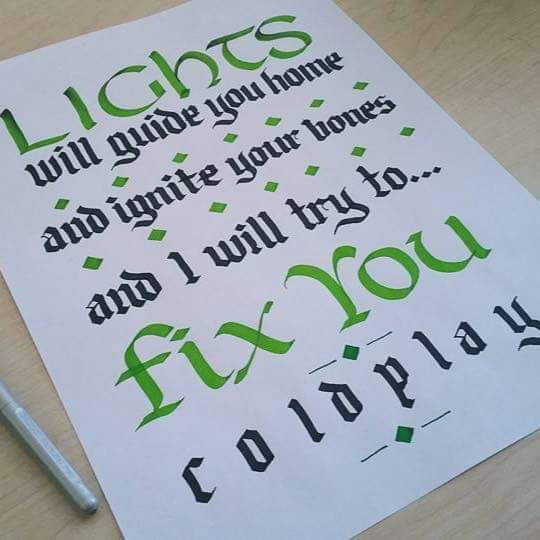 LIGhTS
will guide you home
and ignite your bones
and I will try to...
fix You
coldplay